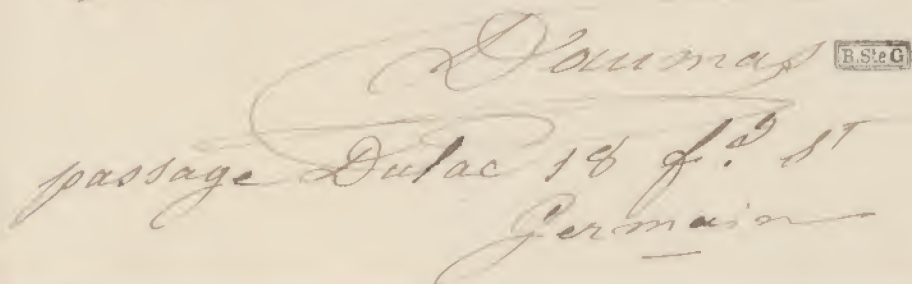 Daumas B.SteG
passage Dulac 18 f.g St
Germain